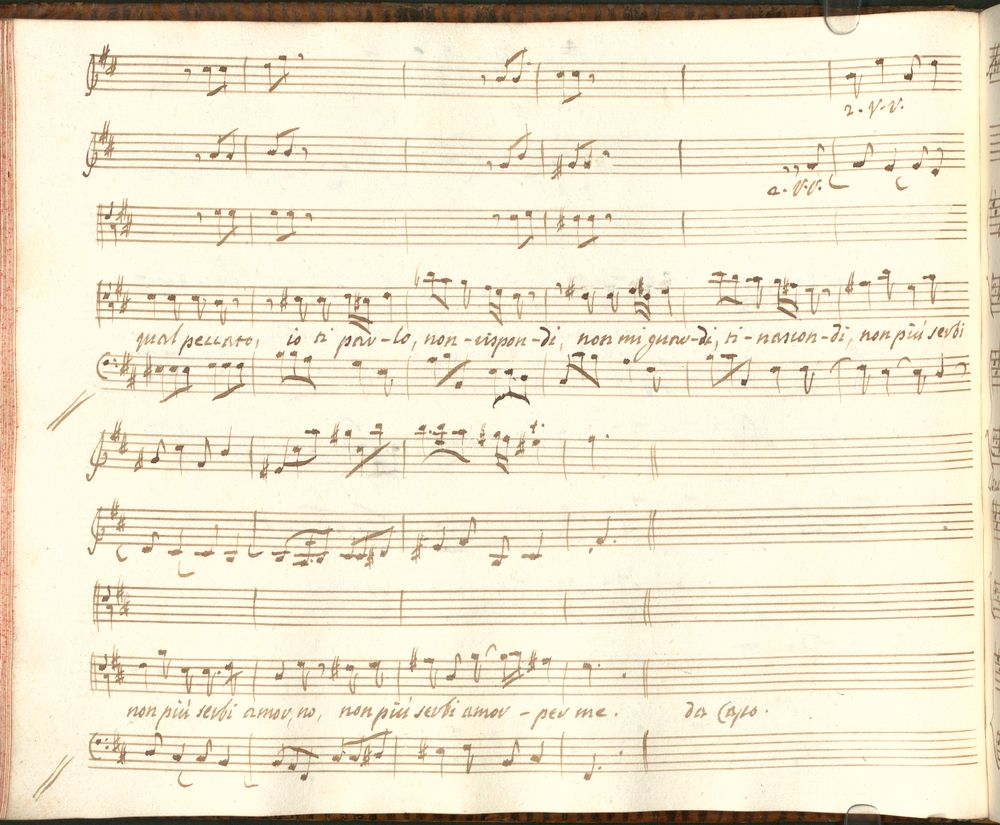 2. V. V.
2. V. V.
qual peccato, io ti par-lo, non-rispon-di, non mi guar-di, ti-nascon-di, non più serbi
non più serbi amor, no, non più serbi amor - per me. da Capo.